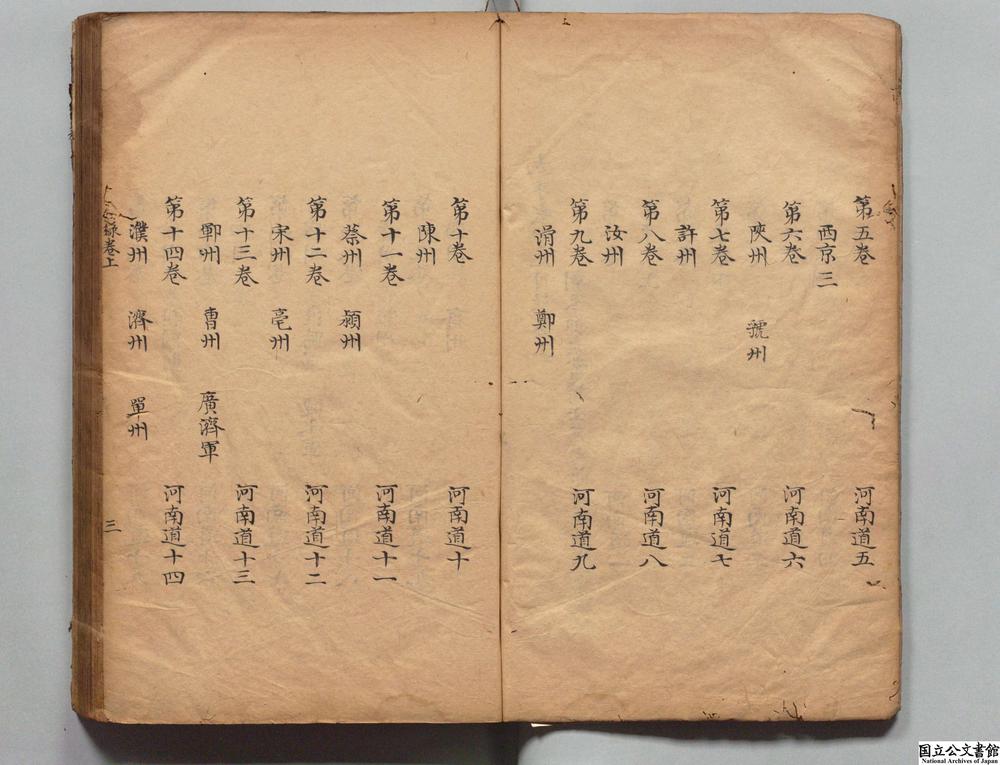 第五卷 河南道五
西京三
第六卷 河南道六
陝州 虢州
第七卷 河南道七
許州
第八卷 河南道八
汝州
第九卷 河南道九
滑州 鄭州
第十卷 河南道十
陳州
第十一卷 河南道十一
蔡州 潁州
第十二卷 河南道十二
宋州 亳州
第十三卷 河南道十三
鄆州 曹州 廣濟軍
第十四卷 河南道十四
濮州 濟州 單州
錄卷上 三
国立公文書館
National Archives of Japan